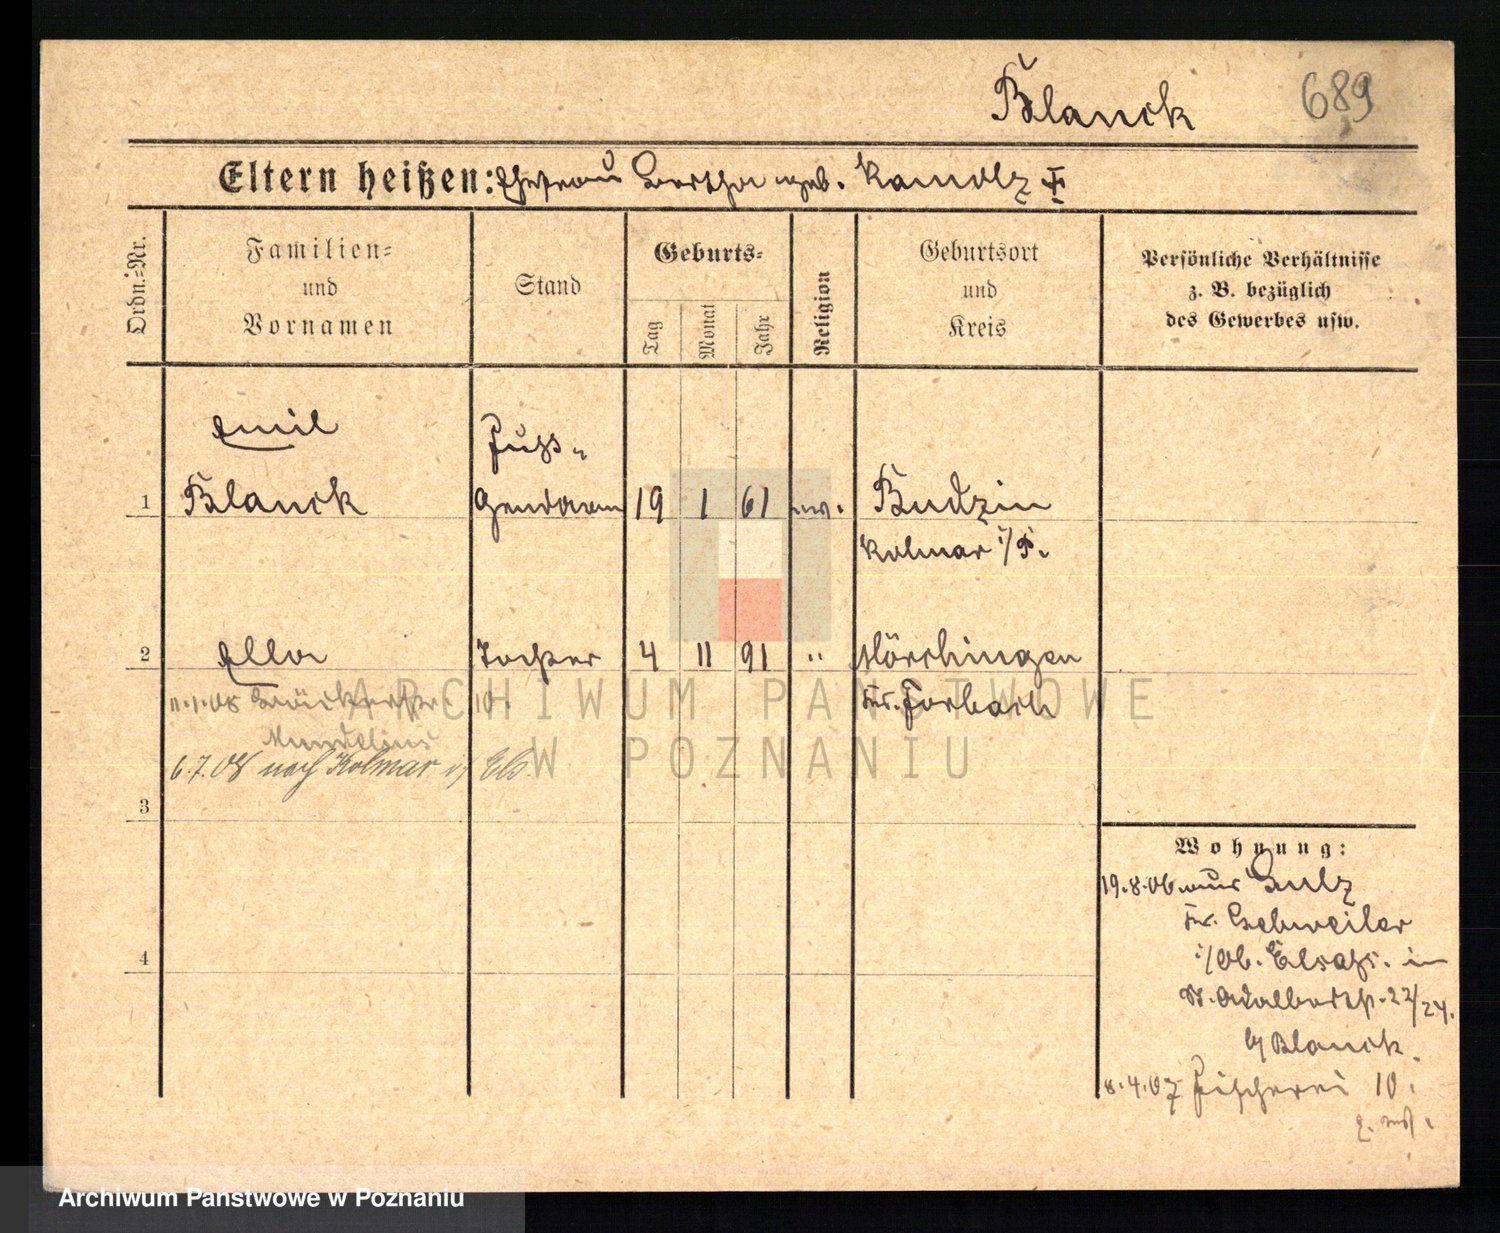 Blanck 689
Eltern heißen: Ehefrau Bertha geb. Kandlz
Ordn.-Nr.
Familien-
und
Vornamen
Stand
Geburts-
Tag
Monat
Jahr
Religion
Geburtsort
und
Kreis
Persönliche Verhältnisse
z. B. bezüglich
des Gewerbes usw.
Emil
Fuß-
1 Blanck Gendarm 19 1 61 ev. Budzin
Kolmar i/P.
2 Ella Tochter 4 11 91 " Mörchingen
Kr. Forbach
10.
6.7.08 nach Kolmar i/ Els.
3
4
Wohnung:
19.8.06. aus Sulz
Kr. Gebweiler
i/Ob. Elsaß. in
St. Adalbertstr. 22/24.
b/ Blanck.
8.4.07 Fischerei 10.
ARCHIWUM PAŃSTWOWE
W POZNANIU
Archiwum Państwowe w Poznaniu